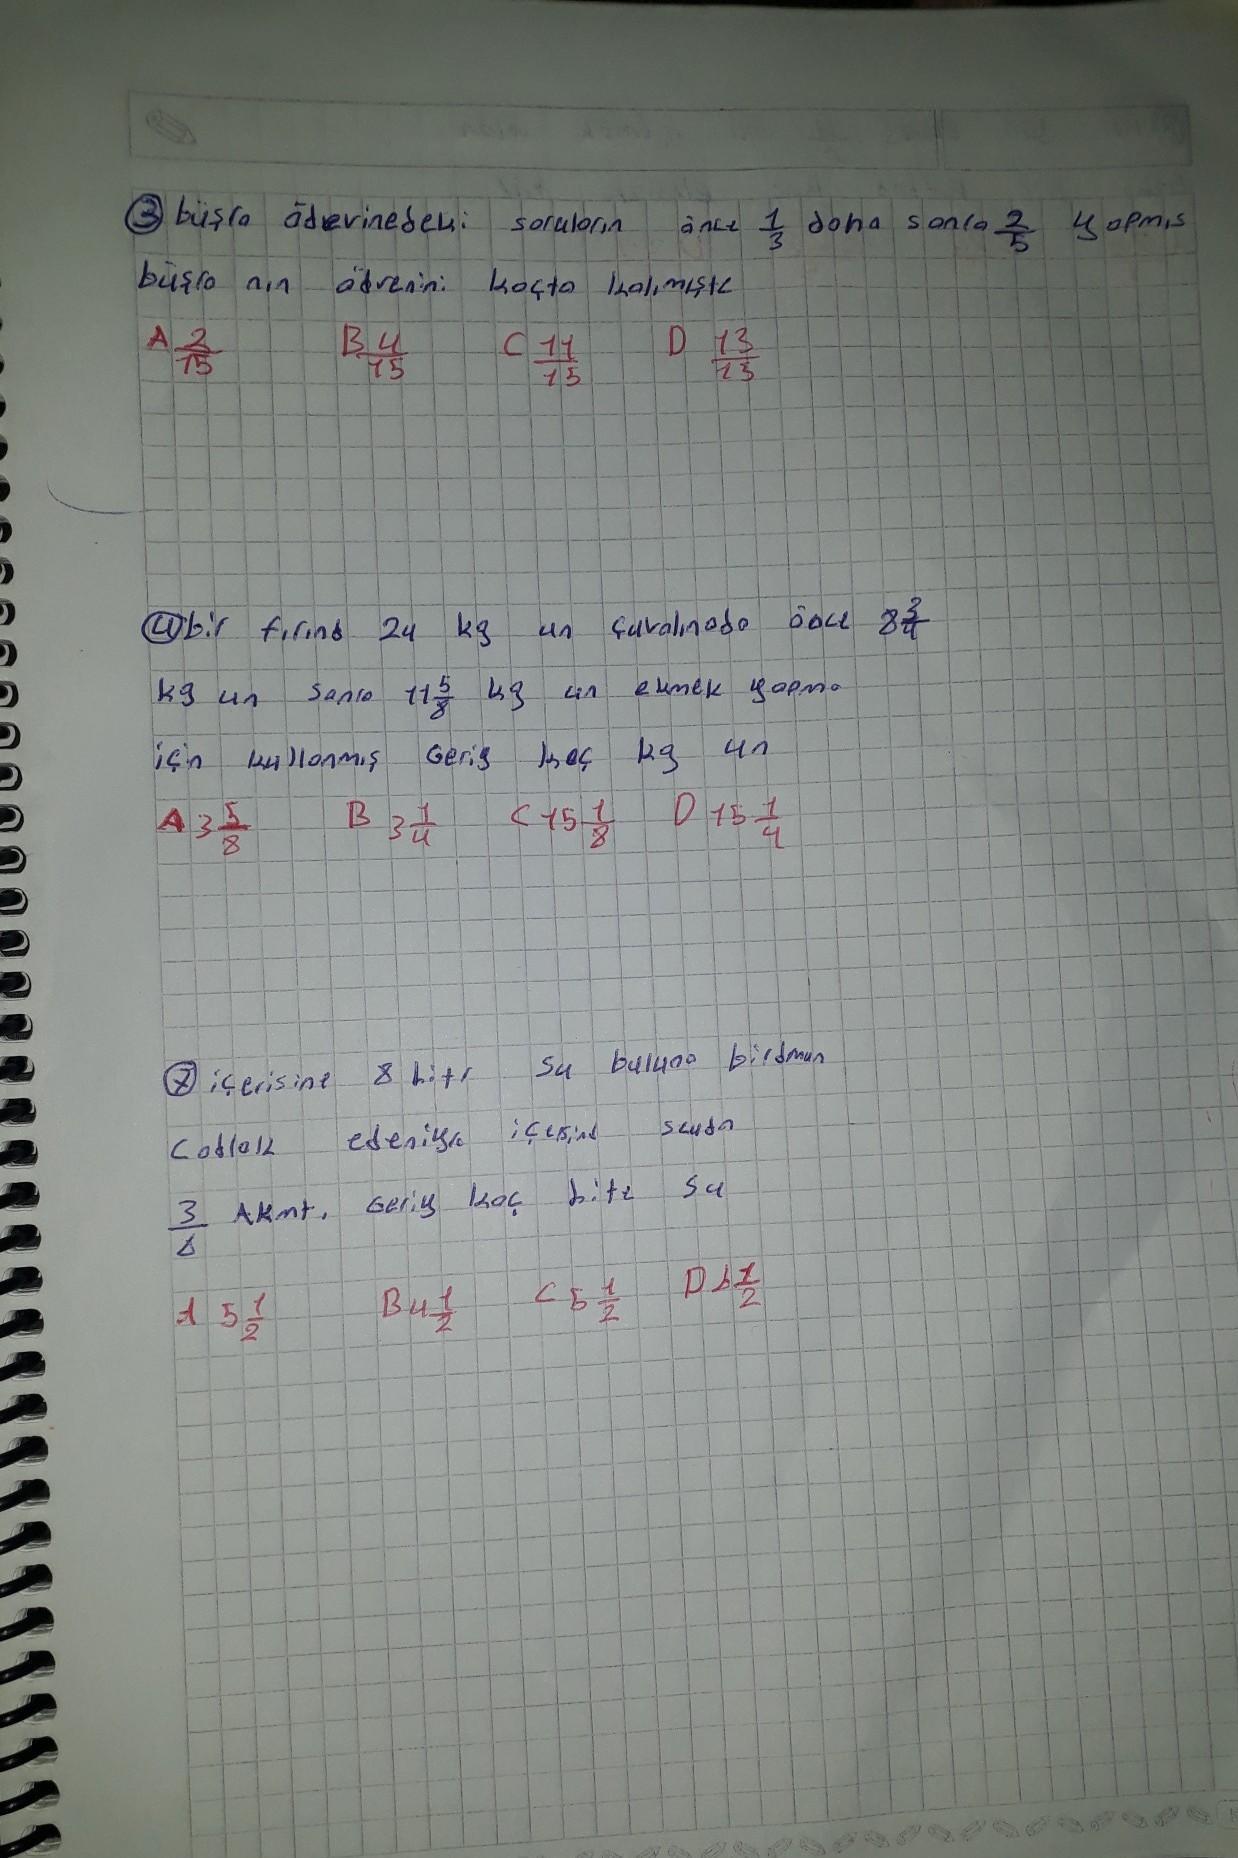 ③ büşra ödevinedeki soruların önce 1/3 daha sonra 2/5 yapmış
büşra nın ödvenini kaçta kalmıştı
A 2/15 B 4/15 C 11/15 D 13/15
④ bir fırınd 24 kg un çuvalınada önce
kg un sonra 11 5/8 kg un ekmek yapma
için kullanmış Geriy kaç kg un
A 3 5/8 B 3 1/4 C 15 1/8 D 15 1/4
⑦ içerisine 8 Litr su buluna birdmun
Catlak içesind
Akmt. Geriy kaç Lite su
A 5 1/2 B 4 1/2 C 5 1/2 D 1/2